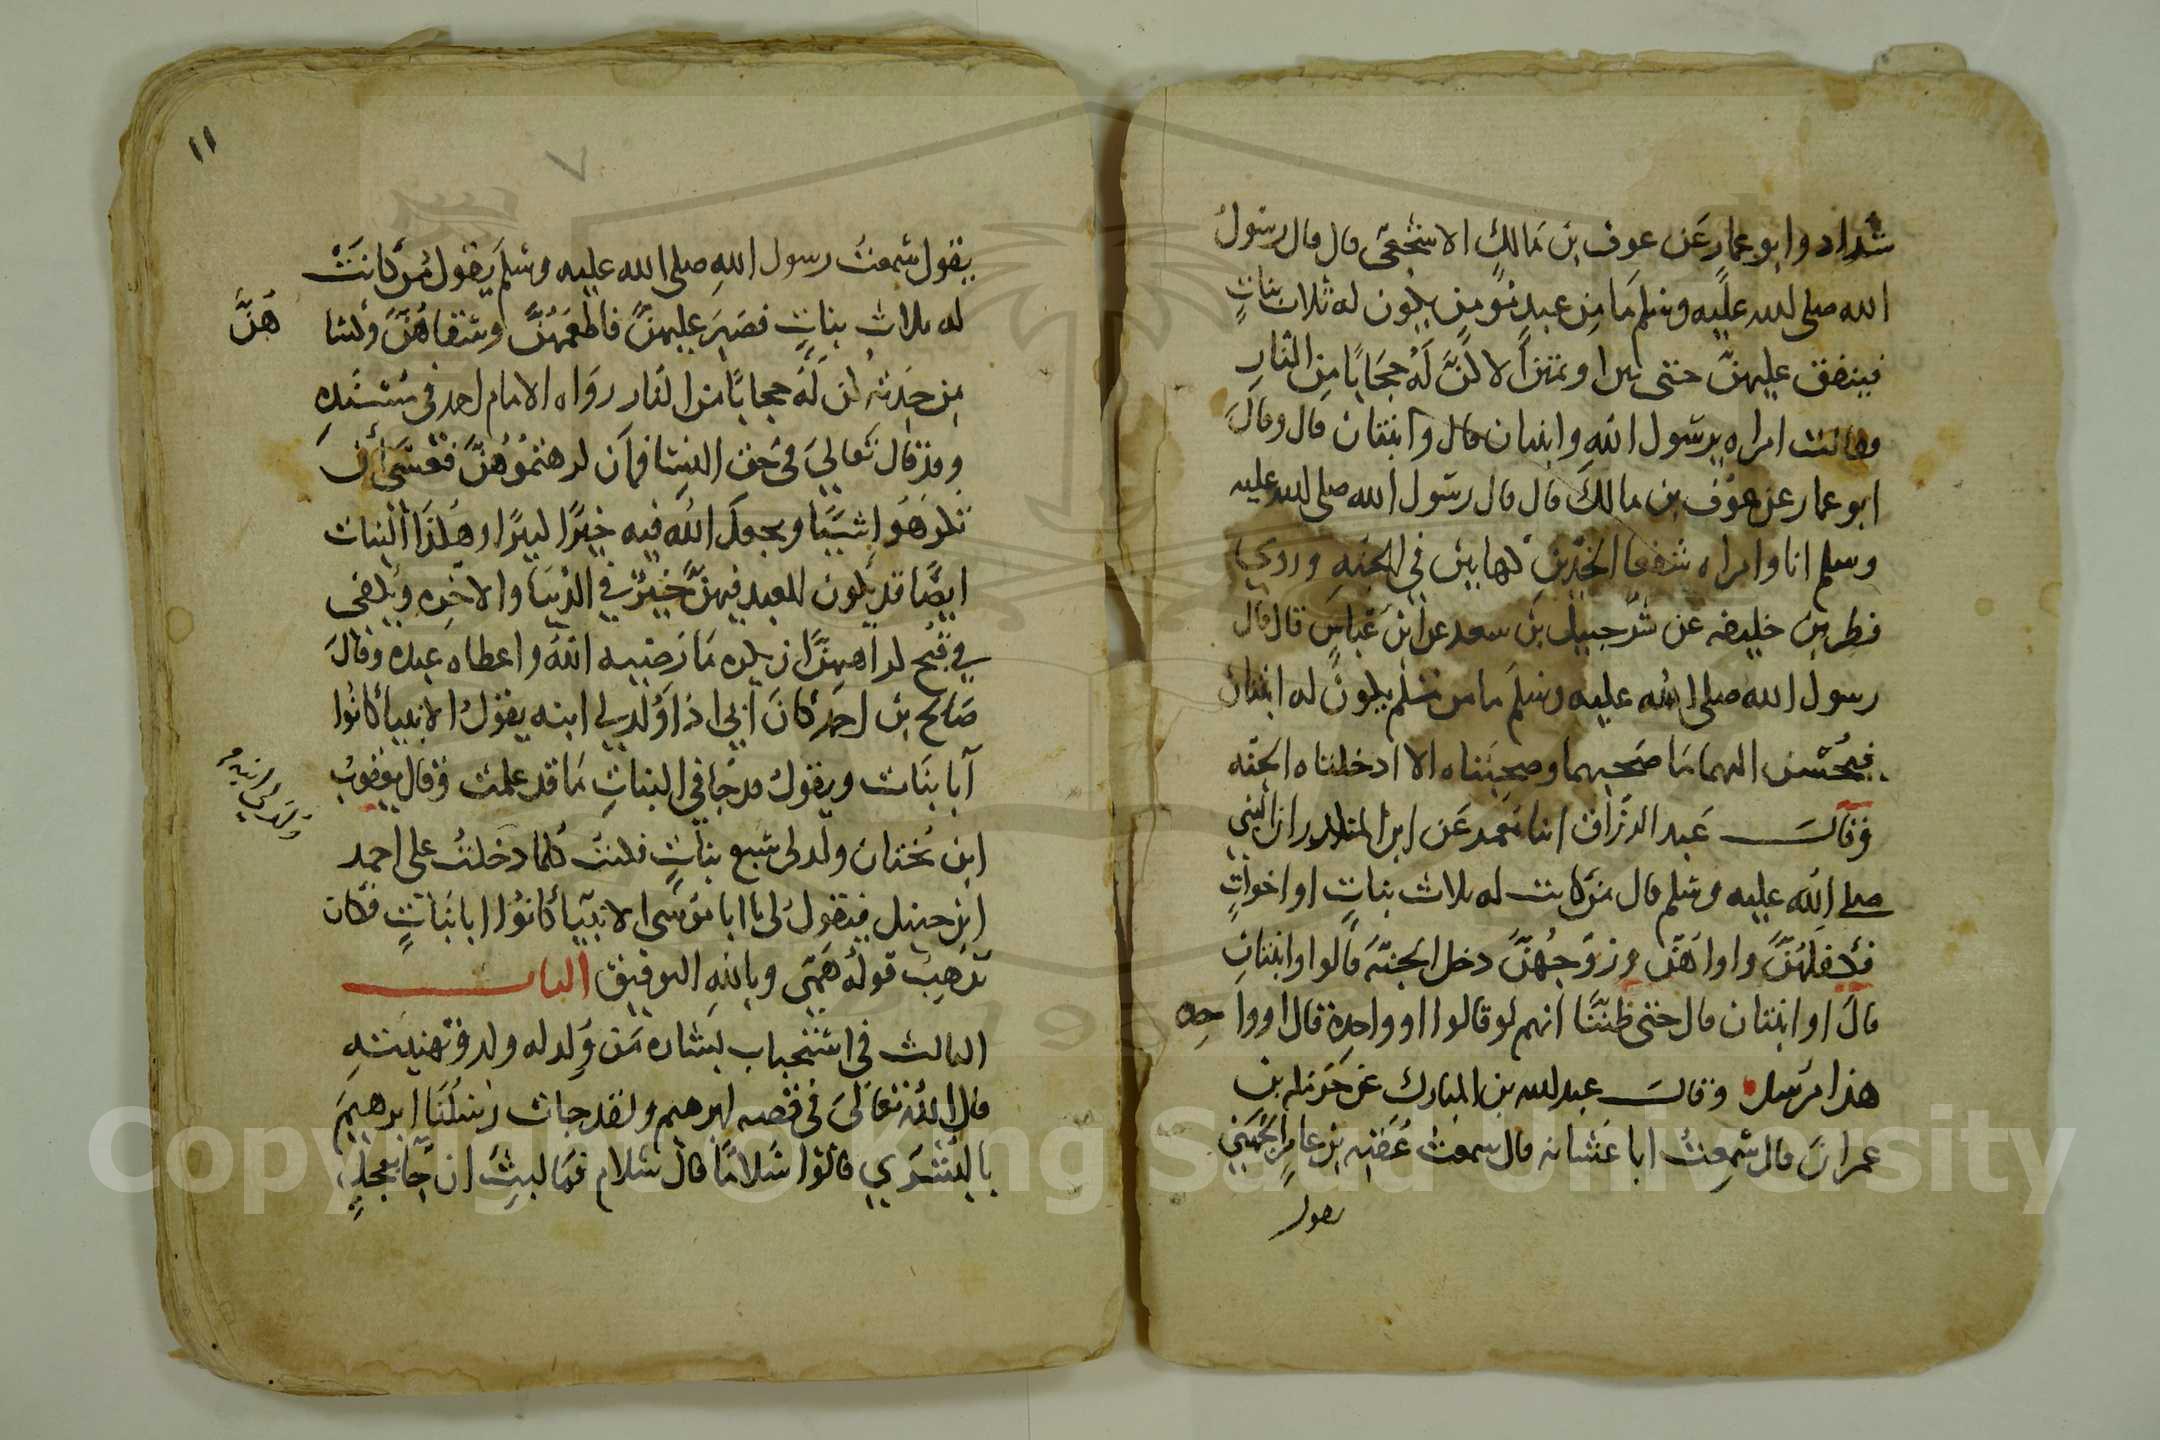 شداد وابو عمار عن عوف بن مالك الاشجعي قال قال رسول
الله صلى الله عليه وسلم ما من عبد مومن يكون له ثلاث بنات
فينفق عليهن حتى يبن او يمتن الا كن له حجابا من النار
وقالت امراه يرسول الله وابنتان قال وابنتان قال وقال
ابو عمار عن عوف بن مالك قال قال رسول الله صلى الله عليه
وسلم انا وامراه سفعا الخدين كهاتين في الجنه وروي
فطر بن خليفه عن شرحبيل بن سعد عن ابن عباس قال قال
رسول الله صلى الله عليه وسلم ما من مسلم يكون له ابنتان
فيحسن اليهما ما صحبهما وصحبتاه الا ادخلتاه الجنه
وقال عبد الرزاق انا معمر عن ابن المنكدر ان النبي
صلى الله عليه وسلم قال من كانت له ثلاث بنات او اخوات
فكفلهن واواهن وزوجهن دخل الجنة قالوا وابنتان
قال او ابنتان قال حتى ظننا انهم لو قالوا او واحدة قال او واحده
هذا مرسل وقال عبد الله بن المبارك عن حرمله بن
عمران قال سمعت ابا عشانه قال سمعت عقبه بن عامر الجهني
يقول
١١
يقول سمعت رسول الله صلى الله عليه وسلم يقول من كانت
له ثلاث بنات فصبر عليهن فاطعمهن وسقاهن وكسا
هن
من جدته كن له حجابا من النار رواه الامام احمد في مسنده
وقد قال تعالي في حق النسا فان كرهتموهن فعسى ان
تكرهوا شيئا ويجعل الله فيه خيرا كثيرا وهكذا البنات
ايضا قد يكون للعبد فيهن خير في الدنيا والاخره ويكفي
في قبح كراهتهن ان يكره ما رضيه الله واعطاه عبده وقال
صالح بن احمد كان ابي اذا ولد لي ابنه يقول الانبيا كانوا
آبا بنات ويقول قد جا في البنات ما قد علمت وقال يعقوب
ابن بختان ولد لي سبع بنات فكنت كلما دخلت على احمد
ابن حنبل فيقول لي يا ابا يوسى الانبيا كانوا ابا بنات فكان
تذهب قوله همي وبالله التوفيق الباب
الثالث في استحباب بشاره من ولد له ولد وتهنيته
قال الله تعالى في قصه ابرهيم ولقد جات رسلنا ابرهيم
بالبشري قالوا سلاما قال سلام فما لبث ان جآ بعجل